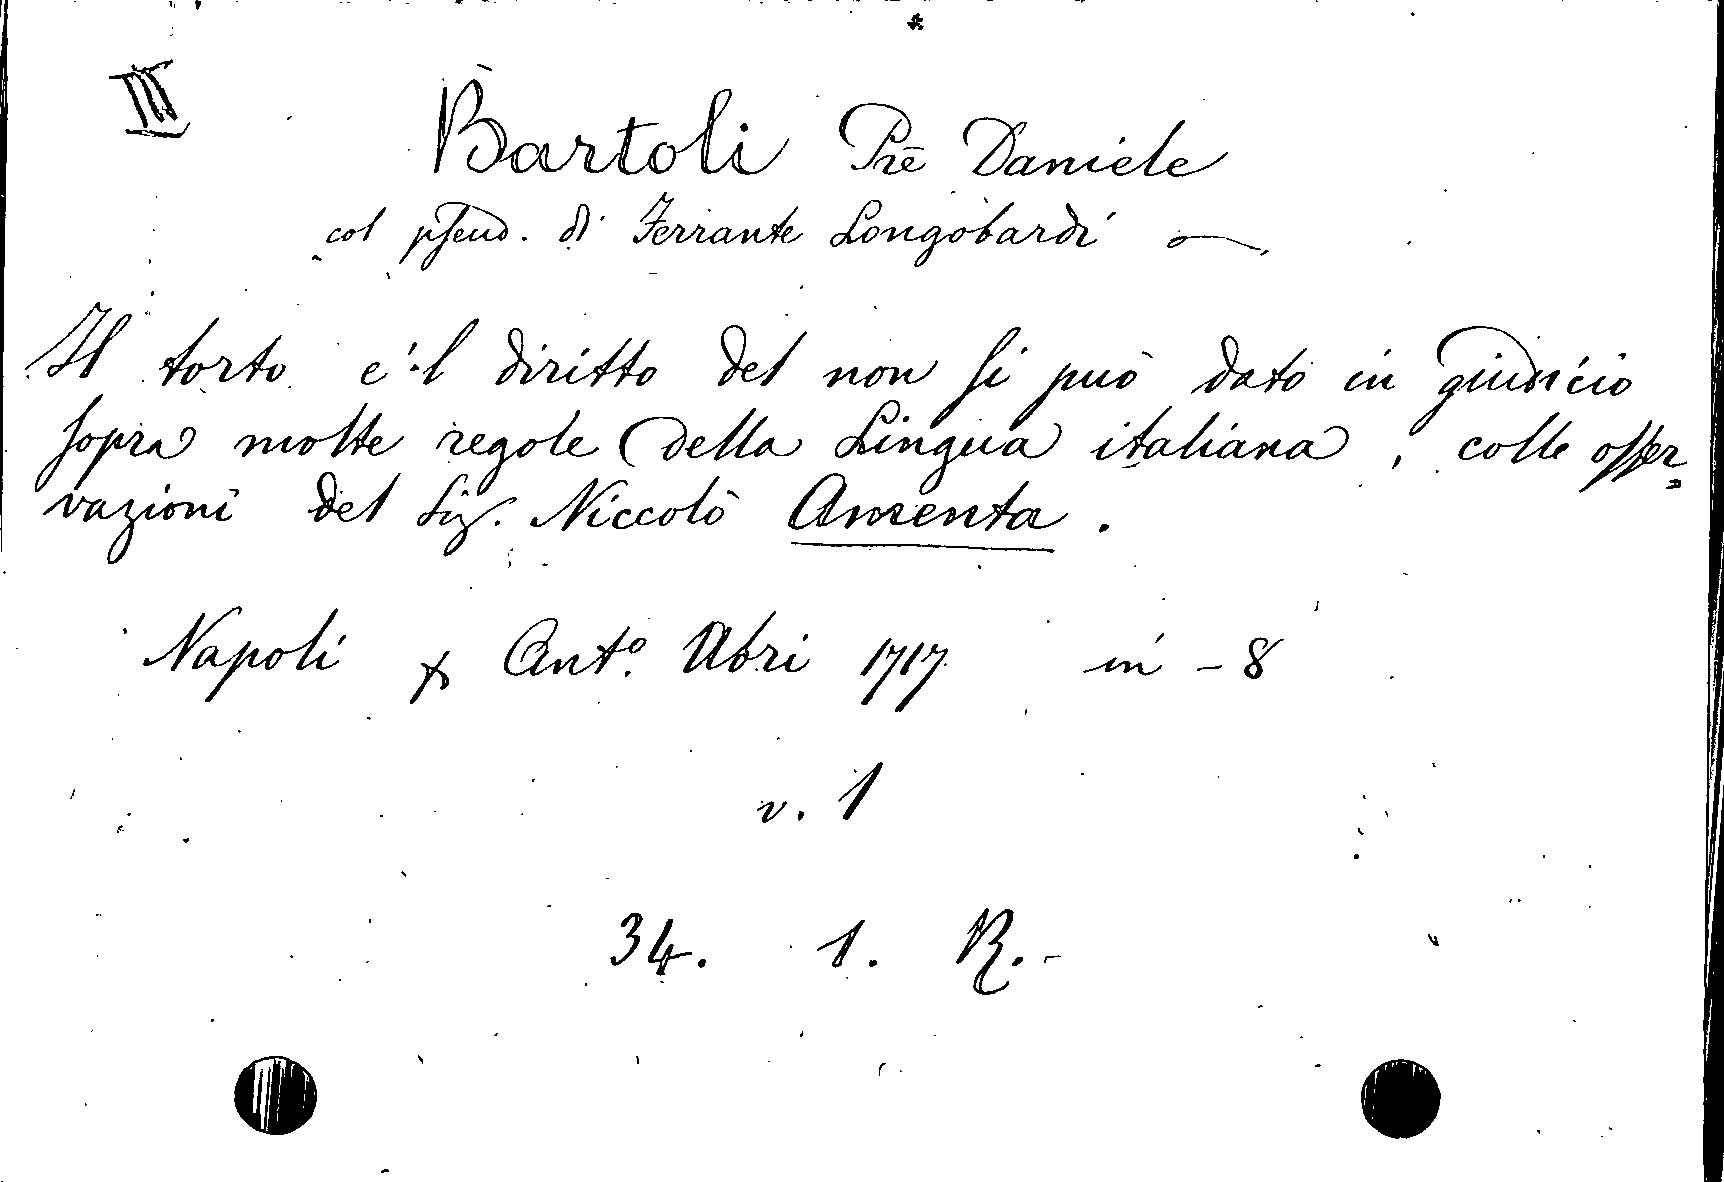 *
III
Bartoli Pre Daniele
col pseud. di Ferrante Longobardi
Il torto e 'l diritto del non si può dato in giudicio
sopra molte regole della Lingua italiana, colle osser=
vazioni del Sig. Niccolò Amenta.
Napoli x Ant.º Abri 1717 in - 8
v. 1
34. 1. R. -